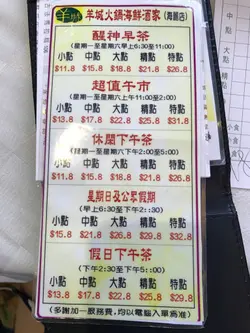 羊城 羊城火鍋海鮮酒家(海麗店)
醒神早茶
(星期一至星期六早上6:30至11:00)
小點 中點 大點 精點 特點
$11.8 $15.8 $18.8 $21.8 $26.8
超值午市
(星期一至星期六上午11:00至2:00)
小點 中點 大點 精點 特點
$15.8 $21.8 $26.8 $28.8 $31.8
休閑下午茶
(星期一至星期六下午2:00至5:00)
小點 中點 大點 精點 特點
$11.8 $15.8 $18.8 $21.8 $26.8
星期日及公眾假期
(早上6:30至下午2:30)
小點 中點 大點 精點 特點
$15.8 $21.8 $26.8 $29.8 $32.8
假日下午茶
(下午2:30至下午5:00)
小點 中點 大點 精點 特點
$13.8 $17.8 $21.8 $25.8 $29.8
(多謝加一 服務費,均以電腦入單為准)